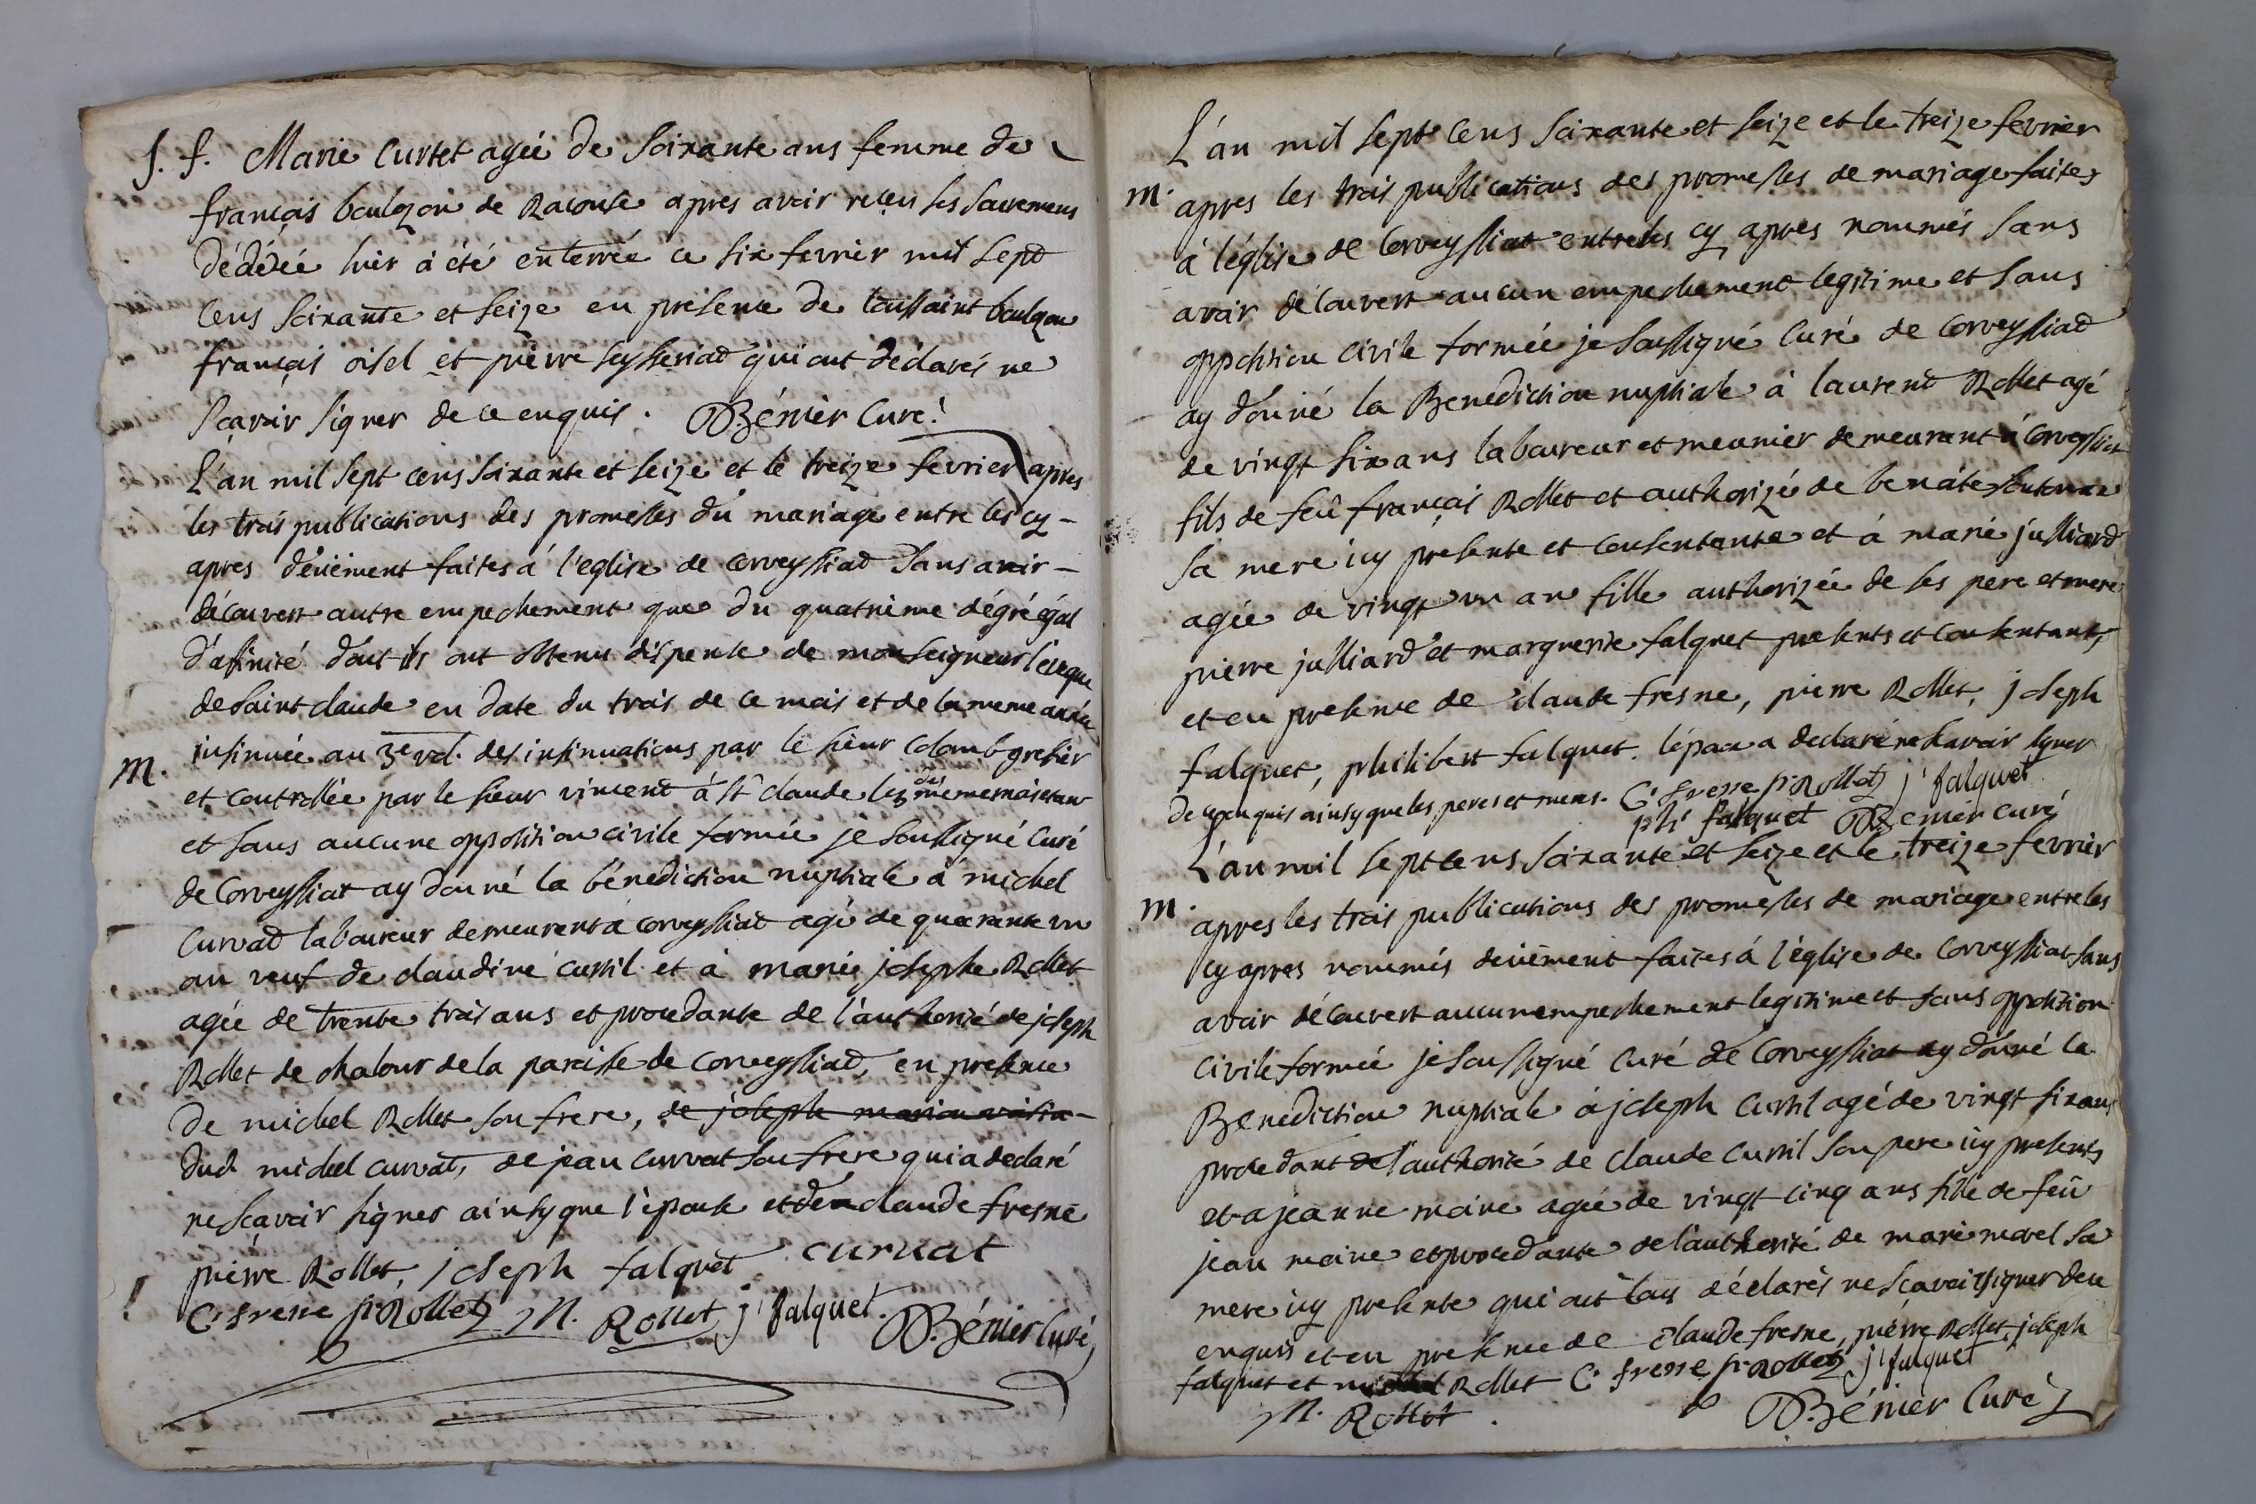 S. f. Marie Curtet agée de soixante ans femme de
français boulqon de Racouse apres avoir reçeu ses sacremens
décédée hier a été enterrée ce six fevrier mil sept
cens soixante et seize en presence de toussaint boulqon
français oisel et pierre qui ont déclarés ne
sçavoir signer de ce enquis. Bénier Curé.
L'an mil sept cens soixante et seize et le treize fevrier apres
les trois publications des promesses du mariage entre les cy-
apres deüement faites à l'eglise de corveyssiat sans avoir-
découvert autre empechement que du quatrieme dégré égal
d'afinité dont ils ont obtenu dispense de monseigneur l'éveque
de saint claude en date du trois de ce mois et de la meme année
m. insinuée au 3e vol. des insinuations par le sieur Colomb grefier
et contrôllée par le sieur vincent à st claude les des meme mois et an
et sans aucune opposition civile formée je soussigné curé
de Corveyssiat ay donné la bénediction nuptiale a michel
Curvat laboureur demeurant a corveyssiat agé de quarante un
an veuf de claudine cursil et à marie josephe Rollet
agée de trente trois ans et procedante de l'authorité de joseph
Rollet de chalour de la paroisse de corveyssiat, en presence
de michel Rollet son frere, de joseph marion voisin
dud. michel curvat, de jean curvat son frere qui a declaré
ne sçavoir signer ainsy que l'épouse et de claude fresne
pierre Rollet, joseph falquet curvat
C. fresne p. Rollet M. Rollet j. falquet. Bénier Curé
L'an mil sept cens soixante et seize et le treize fevrier
m. apres les trois publications des promesses de mariage faites
à l'église de Corveyssiat entre les cy apres nommés sans
avoir découvert aucun empechement legitime et sans
opposition civile formée je soussigné Curé de corveyssiat
ay donné la Benediction nuptiale à laurent Rollet agé
de vingt six ans laboureur et meunier demeurant à Corveyssiat
fils de feû français Rollet et authorizé de benoite
sa mere icy presente et consentante et à marie julliard
agée de vingt un an fille authorizée de ses pere et mere
pierre julliard et marguerite falquet presents et consentants,
et en presence de claude fresne, pierre Rollet, joseph
falquet, philibert falquet. l'epoux a declaré ne sçavoir signer
de ce enquis ainsy que les peres et meres. C. fresne p. Rollet j. falquet
ph. falquet Benier curé
L'an mil sept cens soixante et seize et le treize fevrier
m. apres les trois publications des promesses de mariage entre les
cy apres nommés deüement faites à l'église de Corveyssiat sans
avoir découvert aucun empechement legitime et sans opposition
civile formée je soussigné Curé de Corveyssiat ay donné la
Benediction nuptiale à joseph Cursil agé de vingt six ans
procedant de l'authorité de claude Cursil son pere icy presents
et a jeanne moine agée de vingt cinq ans fille de feû
jean moine et procedante de l'authorité de marie morel sa
mere icy presente qui ont tous déclarés ne sçavoir signer de ce
enquis et en presence de claude fresne, pierre Rollet, joseph
falquet et michel Rollet C. fresne p. Rollet j. falquet
M. Rollet. Bénier Curé